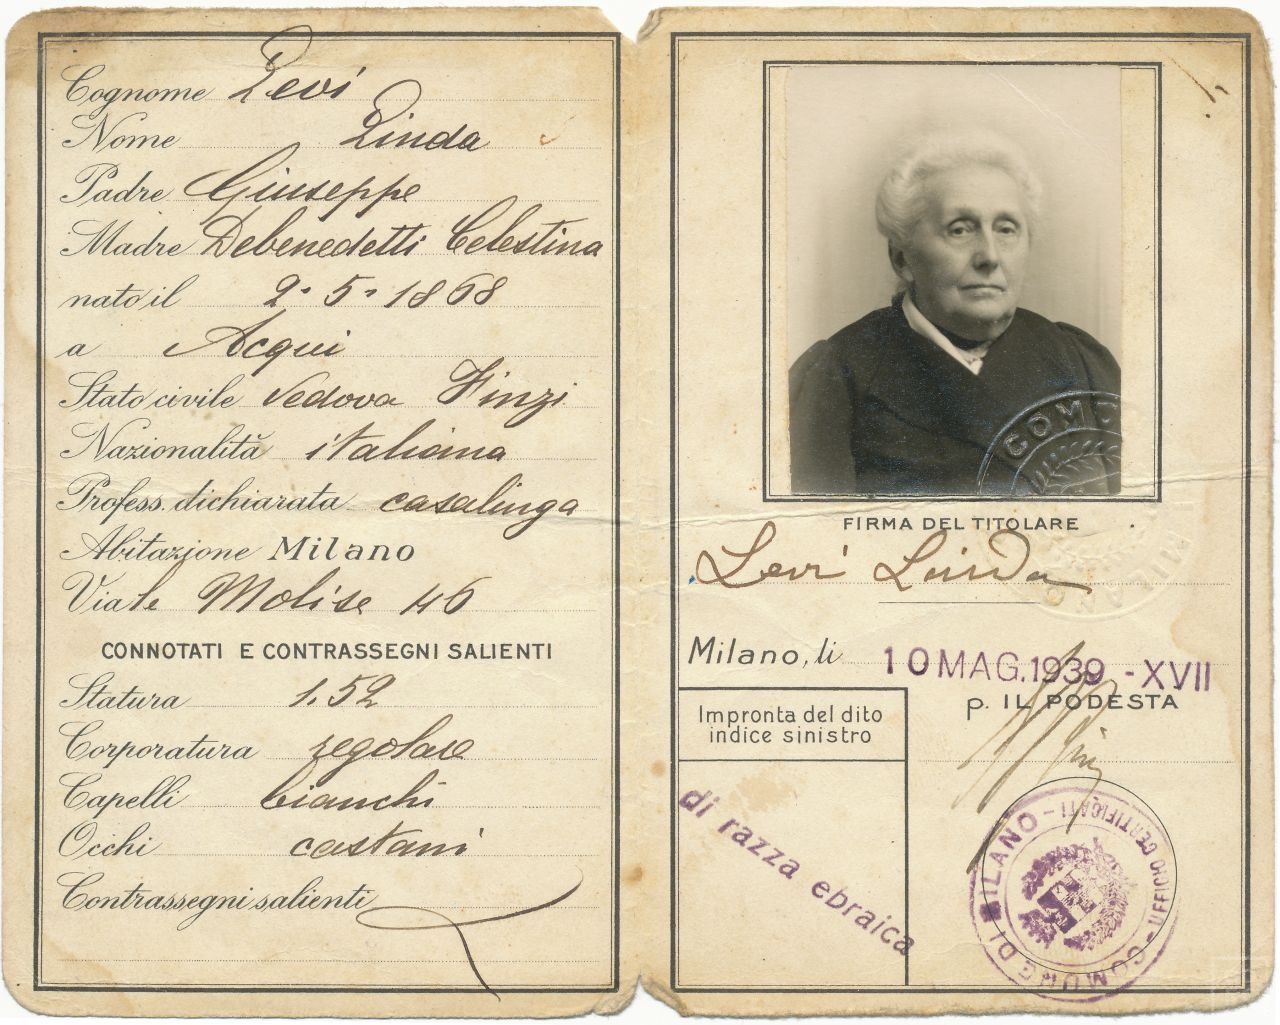 Cognome Levi
Nome Linda
Padre Giuseppe
Madre Debenedetti Celestina
nato il 2-5-1868
a Acqui
Stato civile vedova Finzi
Nazionalità italiana
Profess. dichiarata casalinga
Abitazione Milano
Viale Molise 46
CONNOTATI E CONTRASSEGNI SALIENTI
Statura 1.52
Corporatura regolare
Capelli bianchi
Occhi castani
Contrassegni salienti
COM
MILANO
FIRMA DEL TITOLARE
Levi Linda
Milano, li 10 MAG. 1939 - XVII
p. IL PODESTA
Impronta del dito
indice sinistro
di razza ebraica
COMUNE DI MILANO - UFFICIO CERTIFICATI -